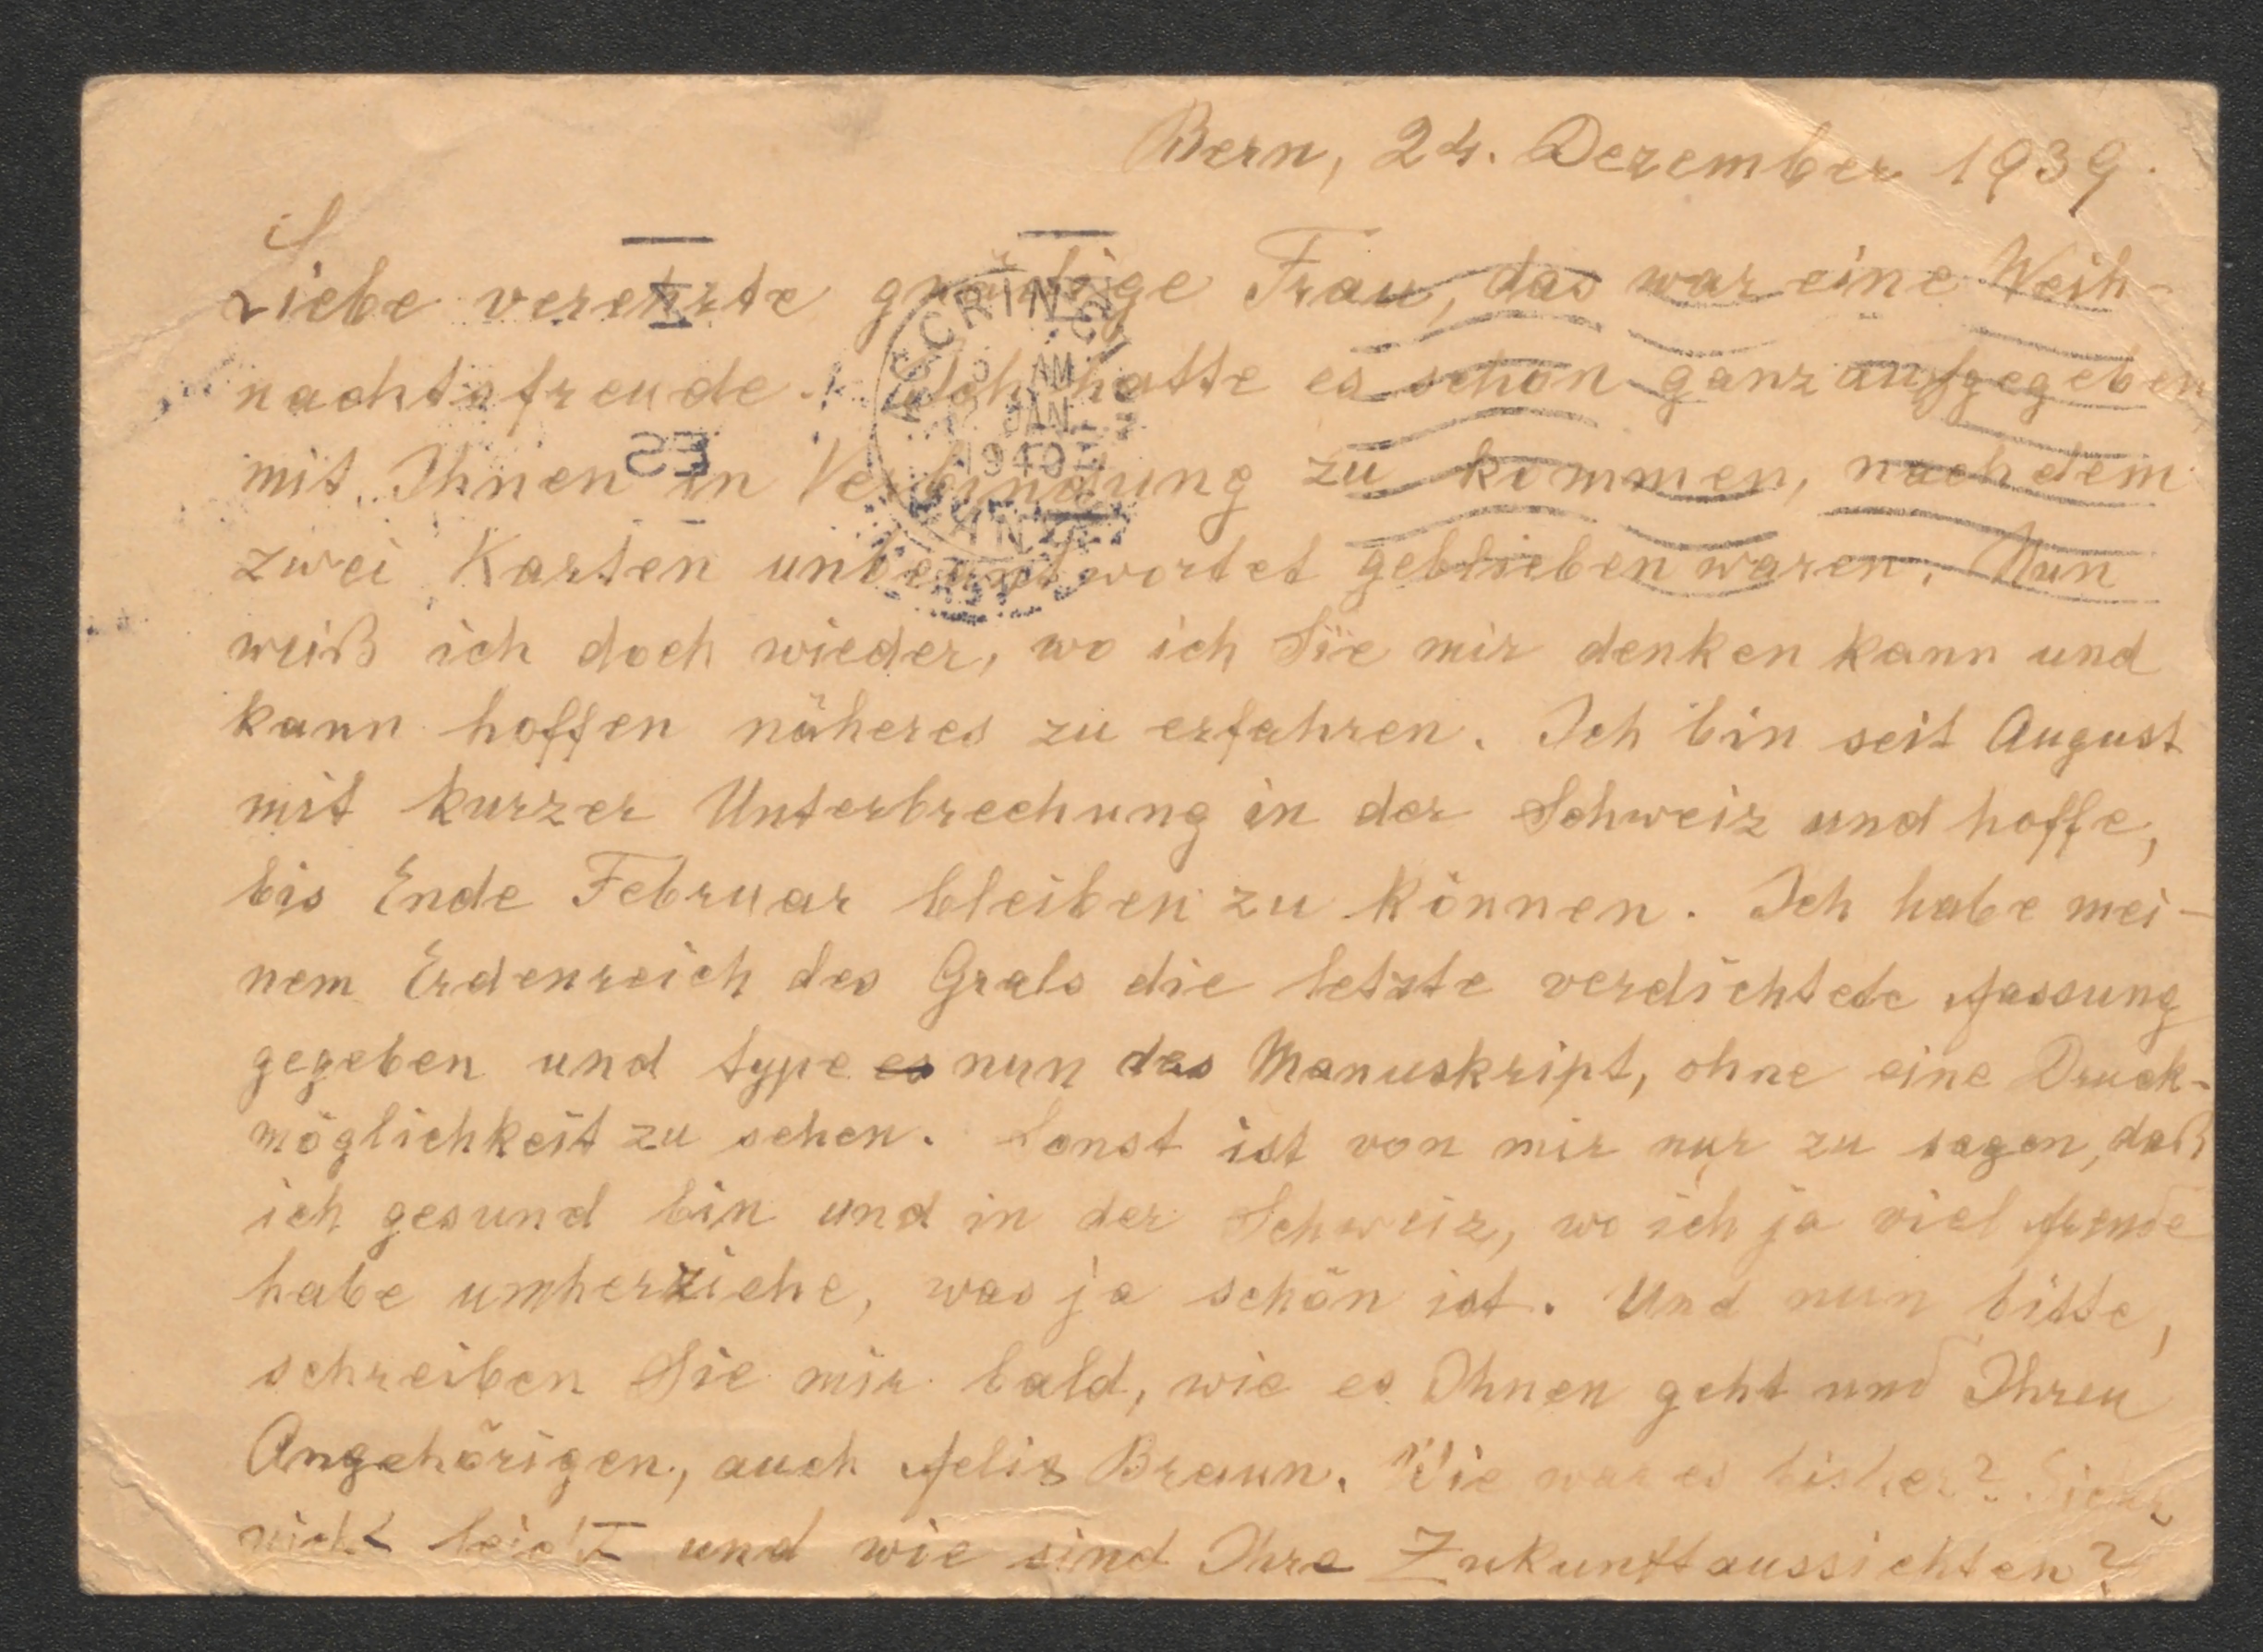 Bern, 24. Dezember 1939.
Liebe verehrte gnädige Frau, das war eine Weih-
nachtsfreude! Ich hatte es schon ganz aufgegeben
mit Ihnen in Verbindung zu kommen, nachdem
zwei Karten unbeantwortet geblieben waren. Nun
weiß ich doch wieder, wo ich Sie mir denken kann und
kann hoffen näheres zu erfahren. Ich bin seit August
mit kurzer Unterbrechung in der Schweiz und hoffe,
bis Ende Februar bleiben zu können. Ich habe mei-
nem Erdenreich des Grals die letzte verdichtete Fassung
gegeben und type es nun das Manuskript, ohne eine Druck-
möglichkeit zu sehen. Sonst ist von mir nur zu sagen, daß
ich gesund bin und in der Schweiz, wo ich ja viel Freunde
habe umherziehe, was ja schön ist. Und nun bitte,
schreiben Sie mir bald, wie es Ihnen geht und Ihren
Angehörigen, auch Felix Braun. Wie war es bisher? Sicher
nicht leicht und wie sind Ihre Zukunftaussichten?
ACCRINGTON
AM
JAN
1940
LANCS